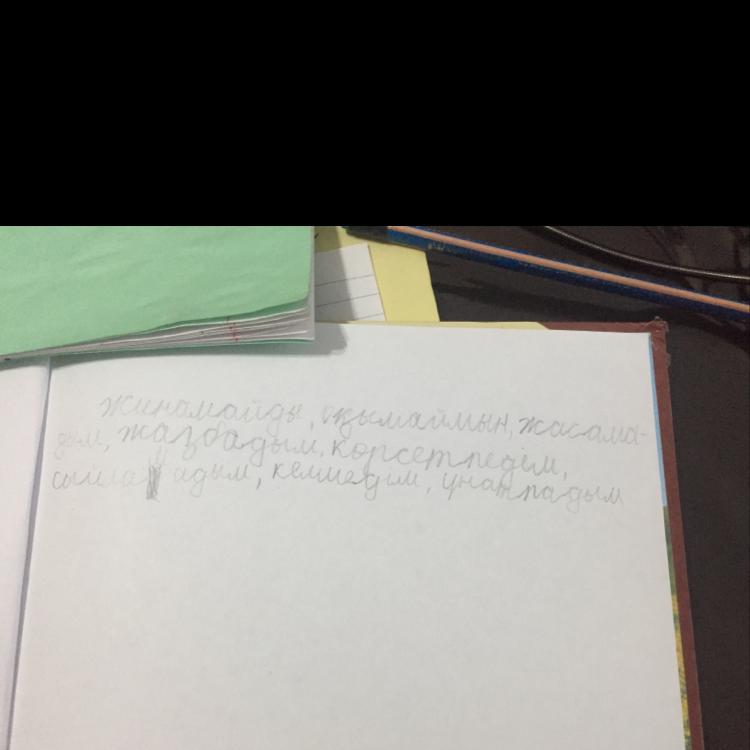 жинамайды, оқымаймын, жасама-
дым, жазбадым, көрсетпедім,
сыйламадым, келмедім, ұнатпадым